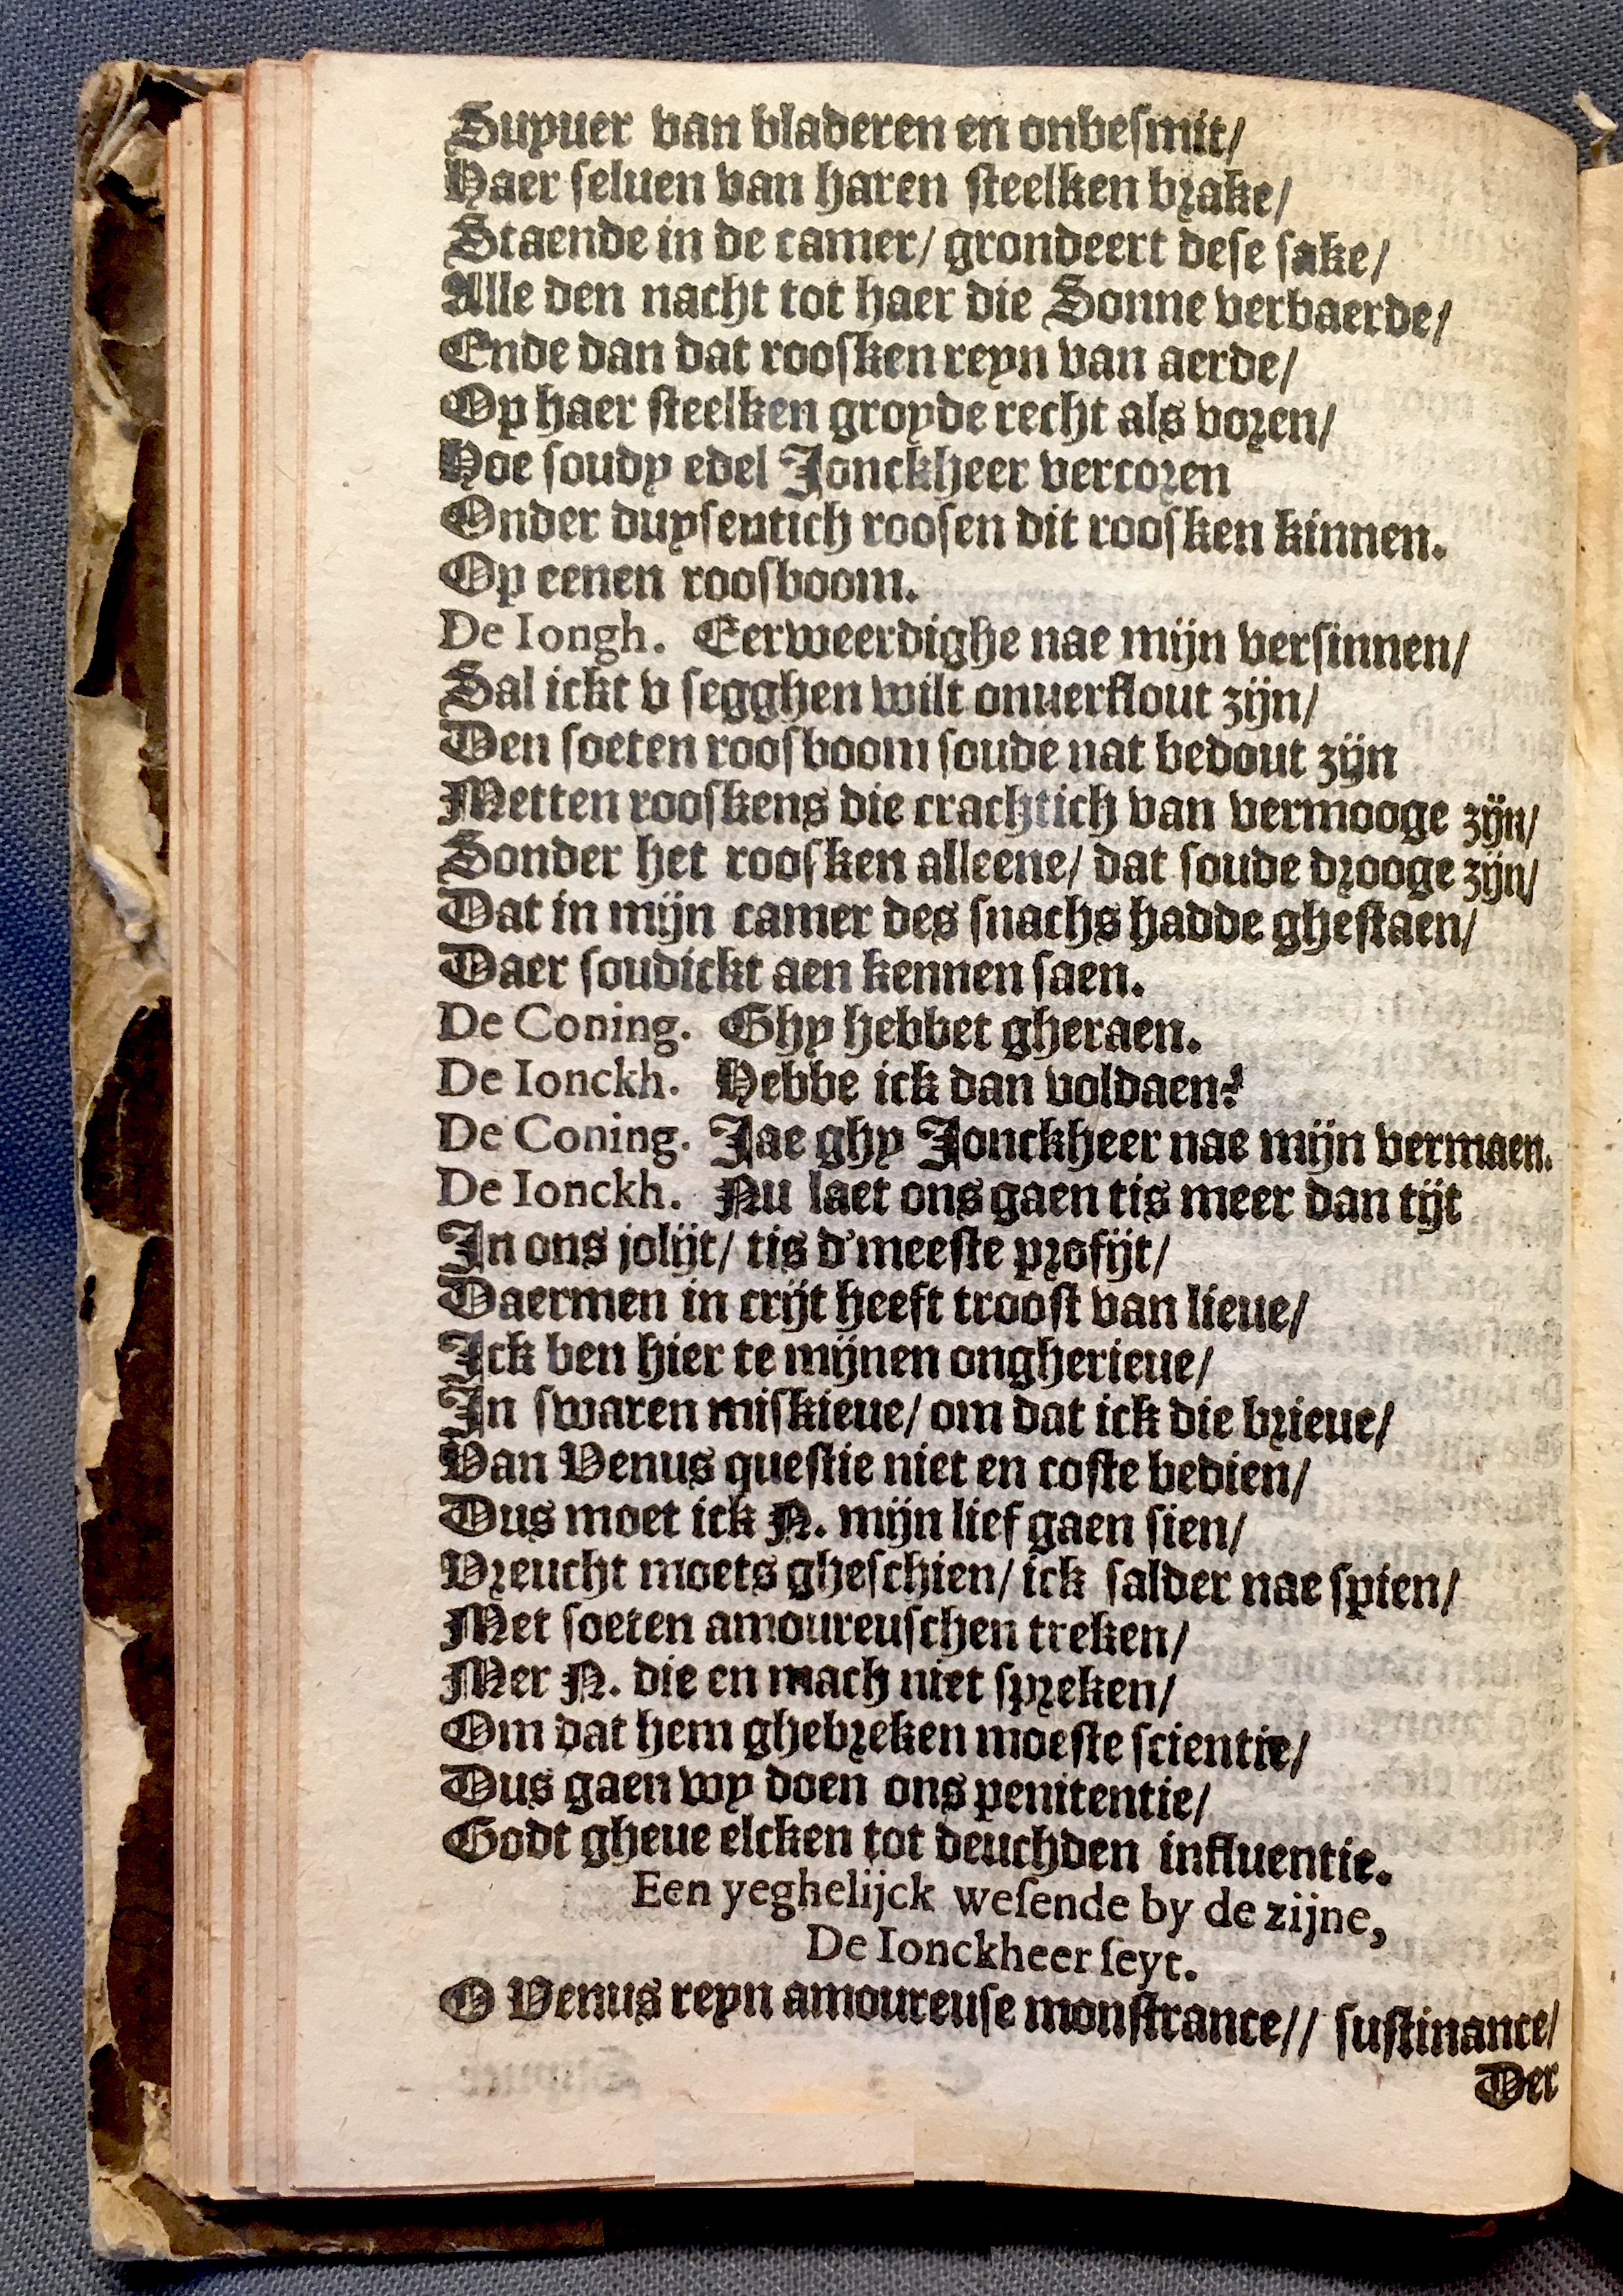 Suyuer van bladeren en onbesmit/
Haer seluen van haren steelken brake/
Staende in de camer/ grondeert dese sake/
Alle den nacht tot haer die Sonne verbaerde/
Ende dan dat roosken reyn van aerde/
Op haer steelken groyde recht als voren/
Hoe soudy edel Jonckheer vercoren
Onder duysentich roosen dit roosken kinnen.
Op eenen roosboom.
De Iongh. Eerweerdighe nae mijn versinnen/
Sal ickt v segghen wilt onuerflout zijn/
Den soeten roosboom soude nat bedout zijn
Metten rooskens die crachtich van vermooge zijn/
Sonder het roosken alleene/ dat soude drooge zijn/
Dat in mijn camer des snachs hadde ghestaen/
Daer soudickt aen kennen saen.
De Coning. Ghy hebbet gheraen.
De Ionckh. Hebbe ick dan voldaen?
De Coning. Jae ghy Jonckheer nae mijn vermaen.
De Ionckh. Nu laet ons gaen tis meer dan tijt
In ons jolijt/ tis d'meeste profijt/
Daermen in crijt heeft troost van lieue/
Ick ben hier te mijnen ongherieue/
In swaren miskieue/ om dat ick die brieue/
Van Venus questie niet en coste bedien/
Dus moet ick N. mijn lief gaen sien/
Vreucht moets gheschien/ ick salder nae spien/
Met soeten amoureuschen treken/
Mer N. die en mach niet spreken/
Om dat hem ghebreken moeste scientie/
Dus gaen wy doen ons penitentie/
Godt gheue elcken tot deuchden influentie.
Een yeghelijck wesende by de zijne,
De Ionckheer seyt.
O Venus reyn amoureuse monstrance// sustinance/
Der